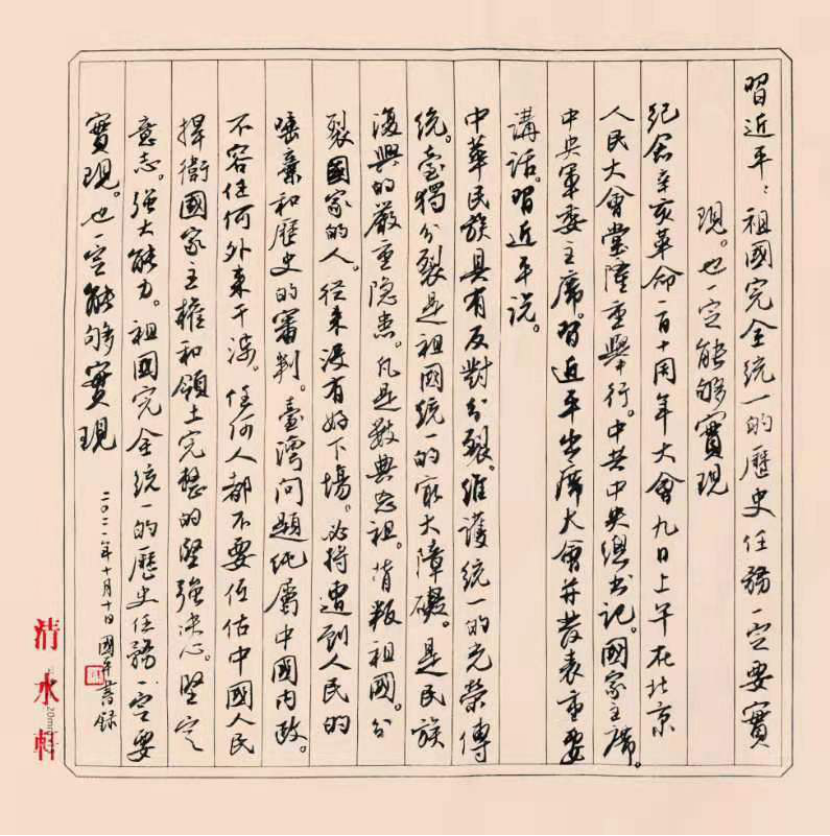 習近平：祖國完全統一的歷史任務一定要實
現。也一定能够實現
紀念辛亥革命一百十周年大會九日上午在北京
人民大會堂隆重舉行。中共中央總书記。國家主席。
中央軍委主席。習近平出席大會并發表重要
講话。習近平说。
中華民族具有反對分裂。維護統一的光榮傳
统。臺獨分裂是祖國統一的最大障礙。是民族
復興的嚴重隐患。凡是数典忘祖。背叛祖國。分
裂國家的人。從来没有好下場。必将遭到人民的
唾棄和歷史的審判。臺灣问題纯屬中國内政。
不容任何外来干涉。任何人都不要低估中國人民
捍衛國家主權和領土完整的堅強决心。堅定
意志。强大能力。祖國完全统一的歷史任務一定要
實現。也一定能够實現
二〇二一年十月十日 國年書録
清水軒